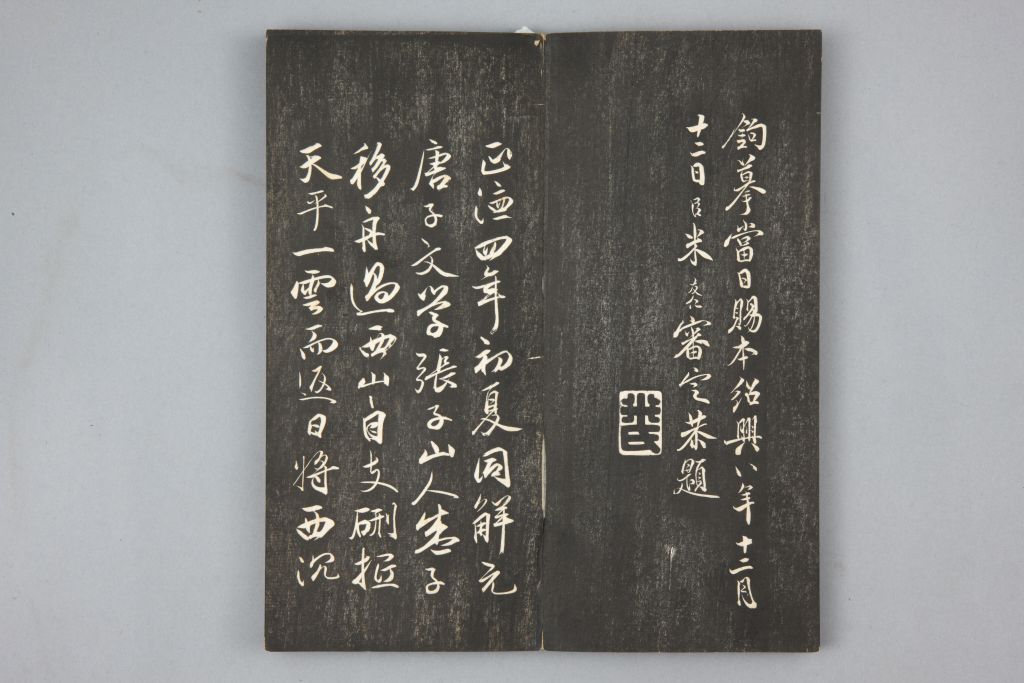 鉤摹當日賜本紹興八年十二月
十二日臣米友仁審定恭題
正德四年初夏同解元
唐子文学張子山人子
移舟過西山自支硎抵
天平一雲而返日將西沉